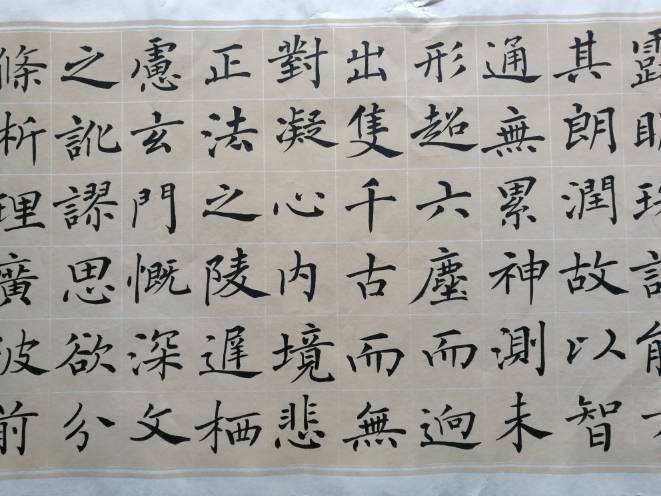 露明珠詎能方
其朗潤故以智
通無累神測未
形超六塵而逈
出隻千古而無
對凝心内境悲
正法之陵遲栖
慮玄門慨深文
之訛謬思欲分
條析理廣彼前